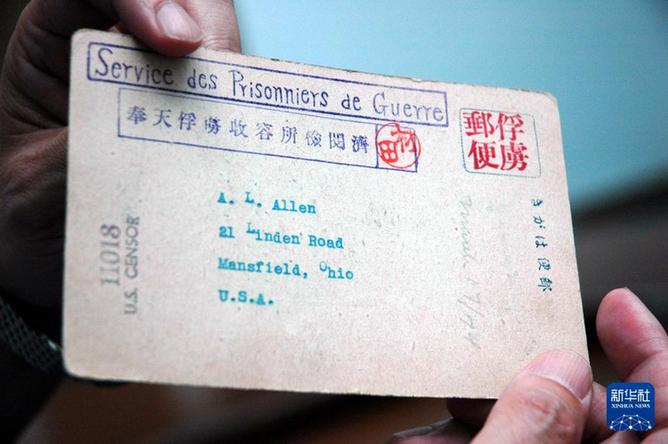 Service des Prisonniers de Guerre
奉天俘虜收容所檢閱濟
村田
俘虜
郵便
A. L. Allen
21 Linden Road
Mansfield, Ohio
U.S.A.
11018
U.S. CENSOR
きがは便郵
新华社
XINHUA NEWS